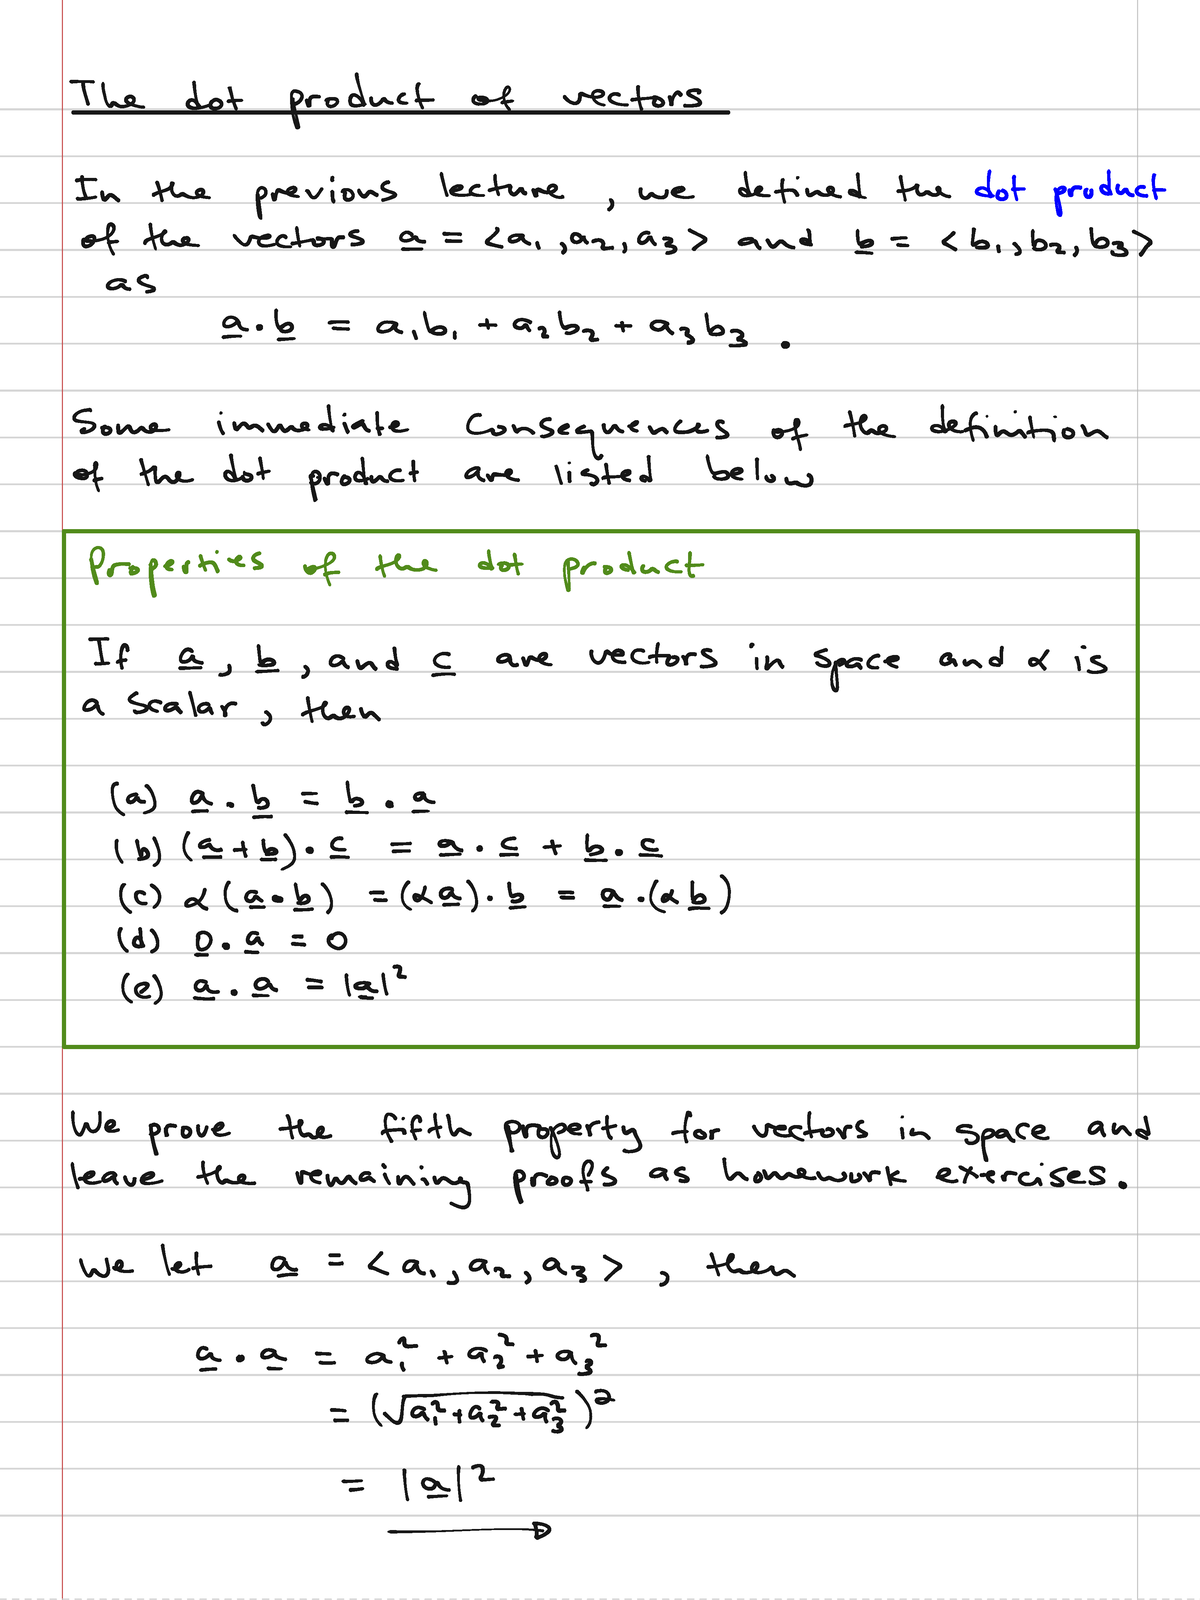 The dot product of vectors
In the previous lecture, we defined the dot product
of the vectors a̲ = <a₁, a₂, a₃> and b̲ = <b₁, b₂, b₃>
as
a̲ · b̲ = a₁b₁ + a₂b₂ + a₃b₃ .
Some immediate Consequences of the definition
of the dot product are listed below
Properties of the dot product
If a̲, b̲, and c̲ are vectors in space and α is
a scalar, then
(a) a̲ · b̲ = b̲ · a̲
(b) (a̲ + b̲) · c̲ = a̲ · c̲ + b̲ · c̲
(c) α(a̲ · b̲) = (αa̲) · b̲ = a̲ · (αb̲)
(d) 0̲ · a̲ = 0
(e) a̲ · a̲ = |a̲|²
We prove the fifth property for vectors in space and
leave the remaining proofs as homework exercises.
We let a̲ = <a₁, a₂, a₃>, then
a̲ · a̲ = a₁² + a₂² + a₃²
= (√(a₁² + a₂² + a₃²))²
= |a̲|²